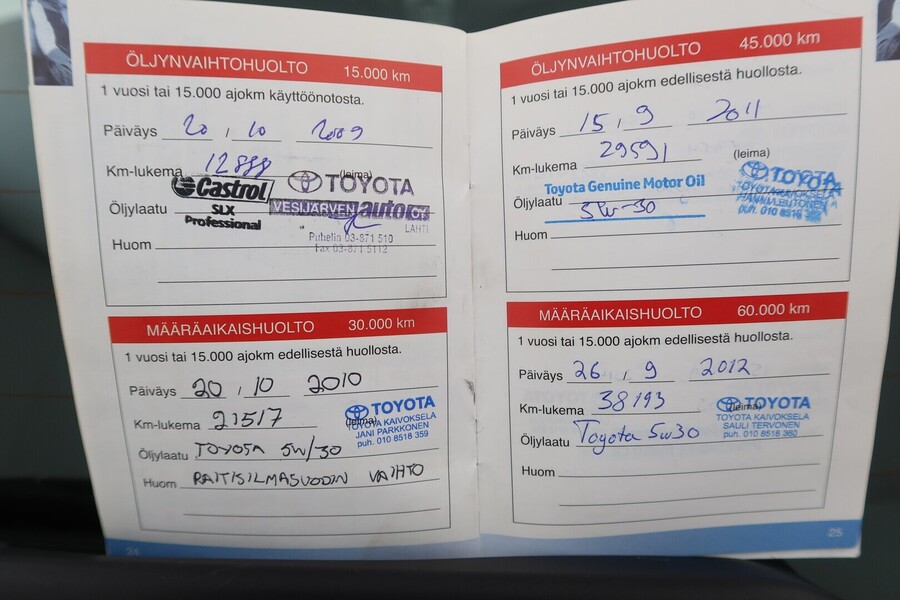 ÖLJYNVAIHTOHUOLTO 15.000 km
1 vuosi tai 15.000 ajokm käyttöönotosta.
Päiväys 20 , 10 2009
Km-lukema 12888 (leima)
Castrol TOYOTA
Öljylaatu SLX VESIJÄRVEN auto OY
Professional LAHTI
Huom Puhelin 03-871 510
Fax 03-871 5112
MÄÄRÄAIKAISHUOLTO 30.000 km
1 vuosi tai 15.000 ajokm edellisestä huollosta.
Päiväys 20 , 10 2010
Km-lukema 21517 (leima)
TOYOTA
TOYOTA KAIVOKSELA
JANI PARKKONEN
puh. 010 8518 359
Öljylaatu TOYOTA 5W/30
Huom RAITISILMASUODIN VAIHTO
24
ÖLJYNVAIHTOHUOLTO 45.000 km
1 vuosi tai 15.000 ajokm edellisestä huollosta.
Päiväys 15 , 9 2011
Km-lukema 29591 (leima)
Toyota Genuine Motor Oil TOYOTA
TOYOTA KAIVOKSELA
Öljylaatu 5W-30
puh. 010 8518
Huom
MÄÄRÄAIKAISHUOLTO 60.000 km
1 vuosi tai 15.000 ajokm edellisestä huollosta.
Päiväys 26 , 9 2012
Km-lukema 38193 (leima)
TOYOTA
TOYOTA KAIVOKSELA
SAULI TERVONEN
puh. 010 8518 360
Öljylaatu Toyota 5w30
Huom
25